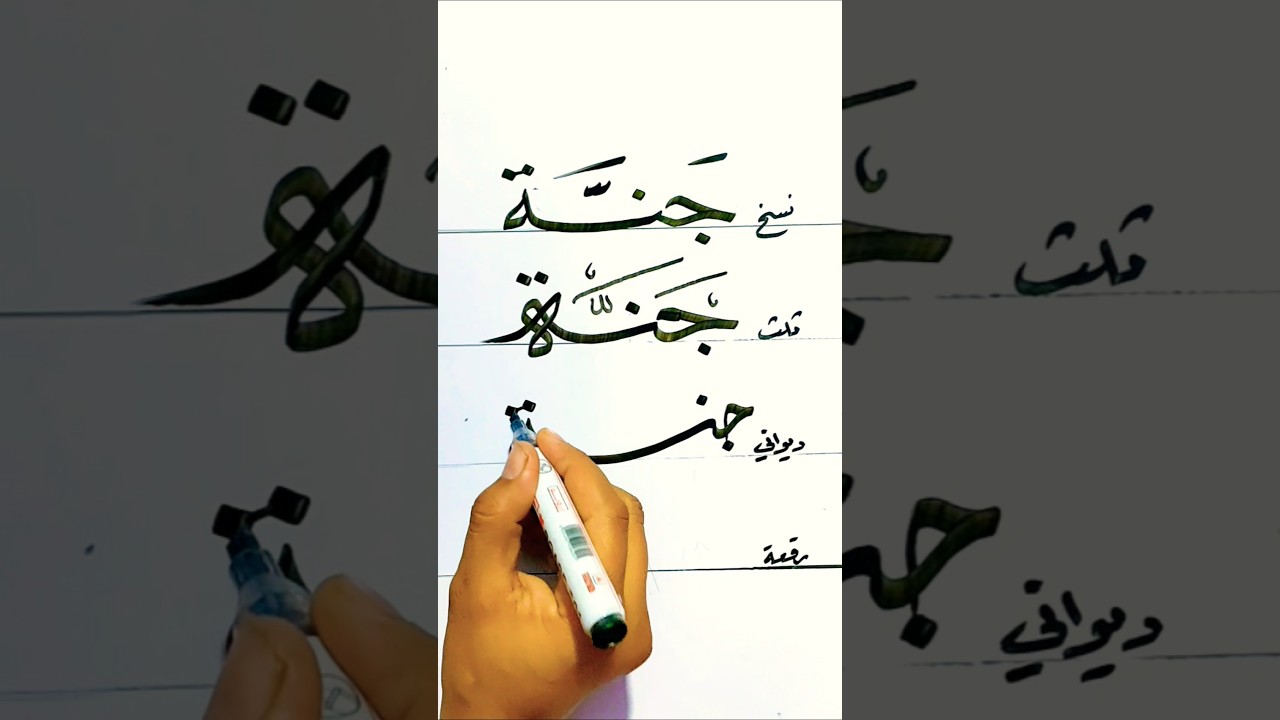 نسخ جَنَّة
ثلث جَنَّة
ديواني جنة
رقعة